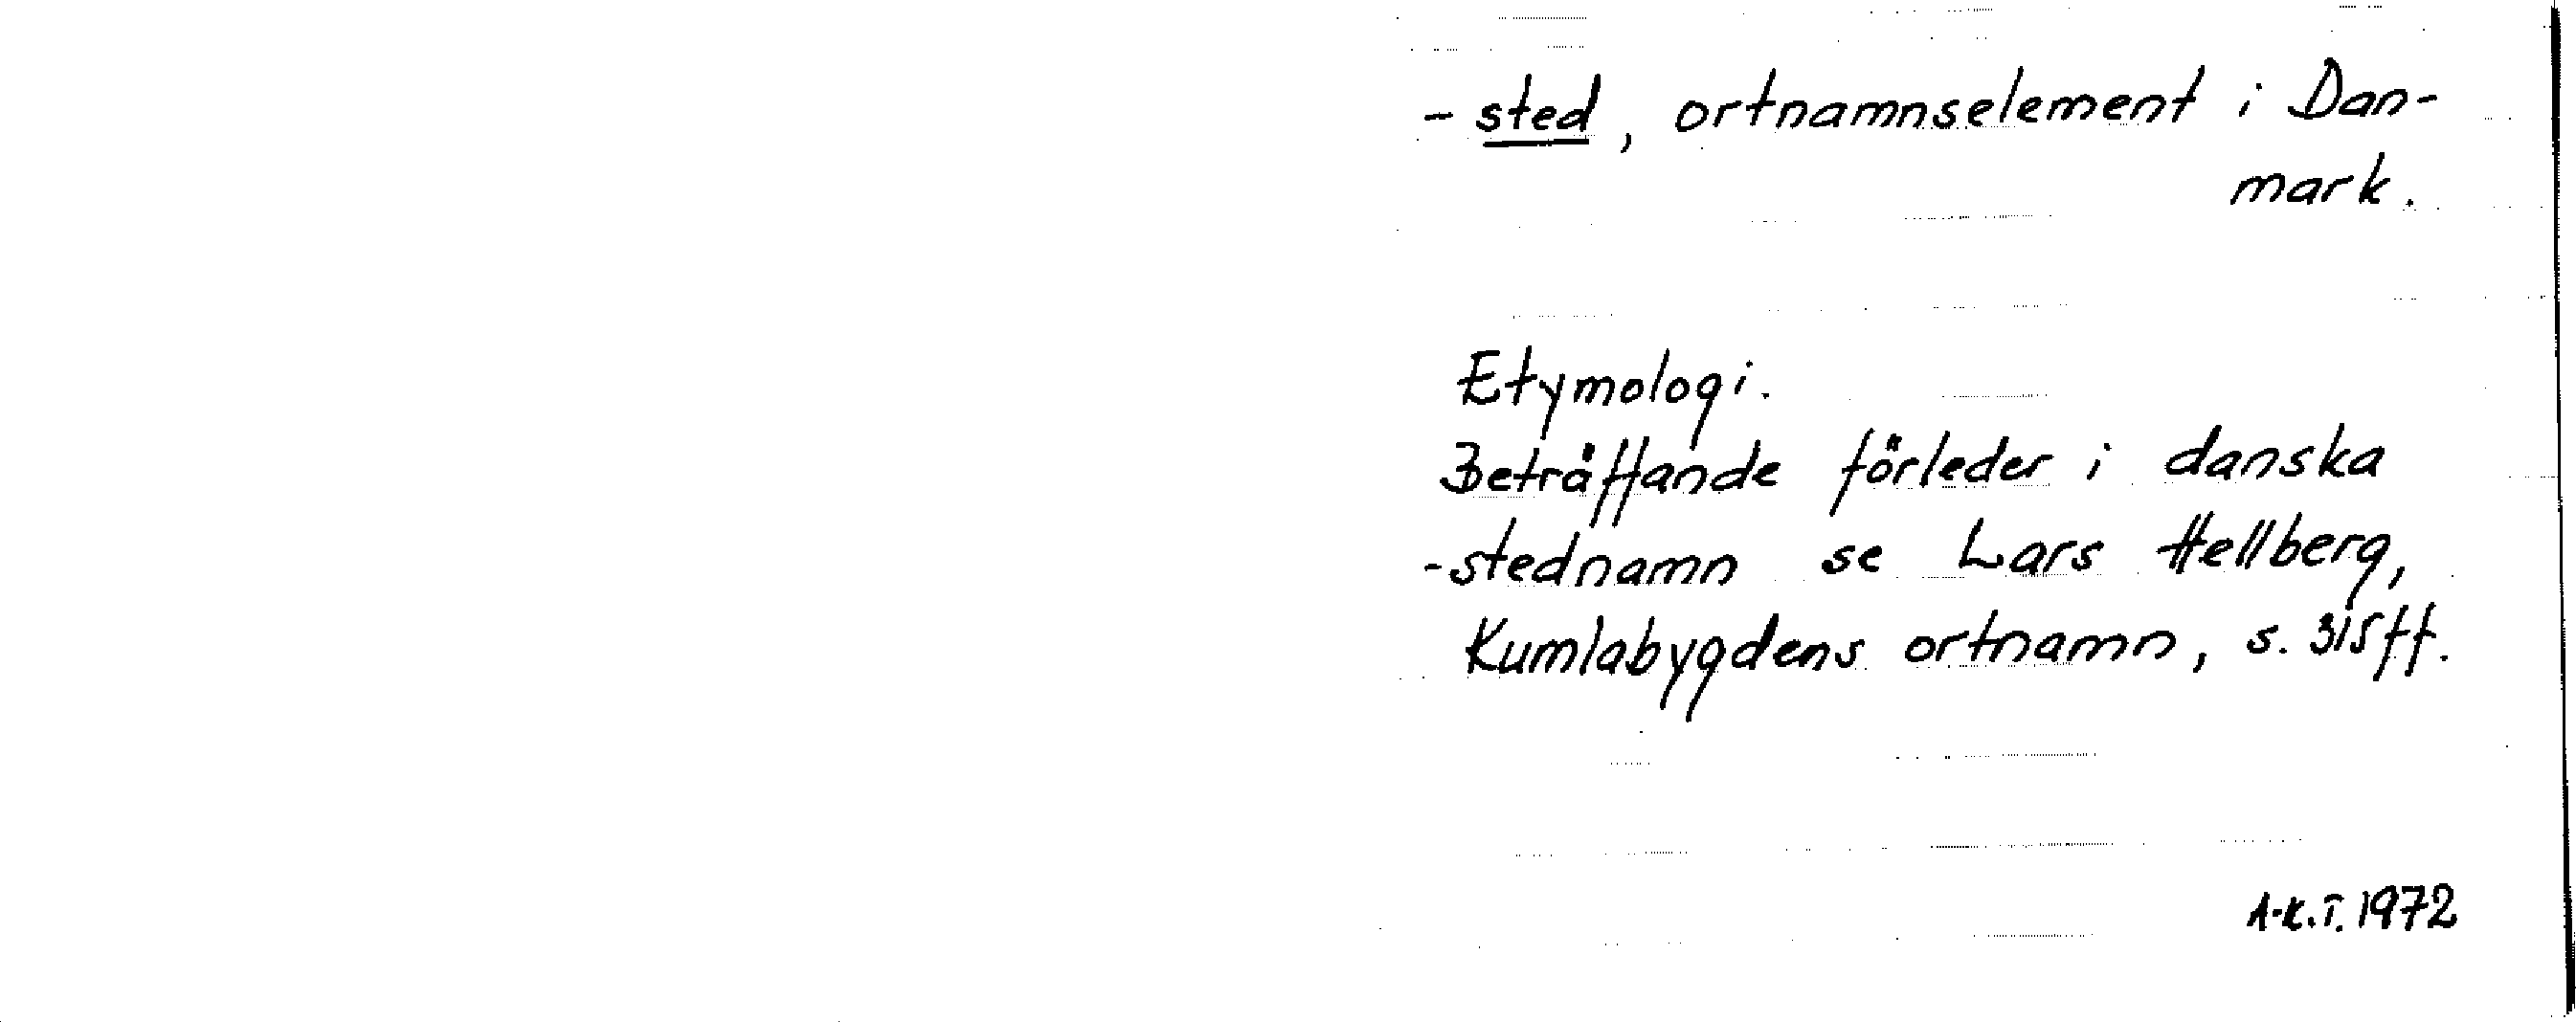 - sted, ortnamnselement i Dan-
mark.
Etymologi.
Beträffande förleder i danska
-stednamn se Lars Hellberg,
Kumlabygdens ortnamn, s. 315ff.
A-K.T. 1972